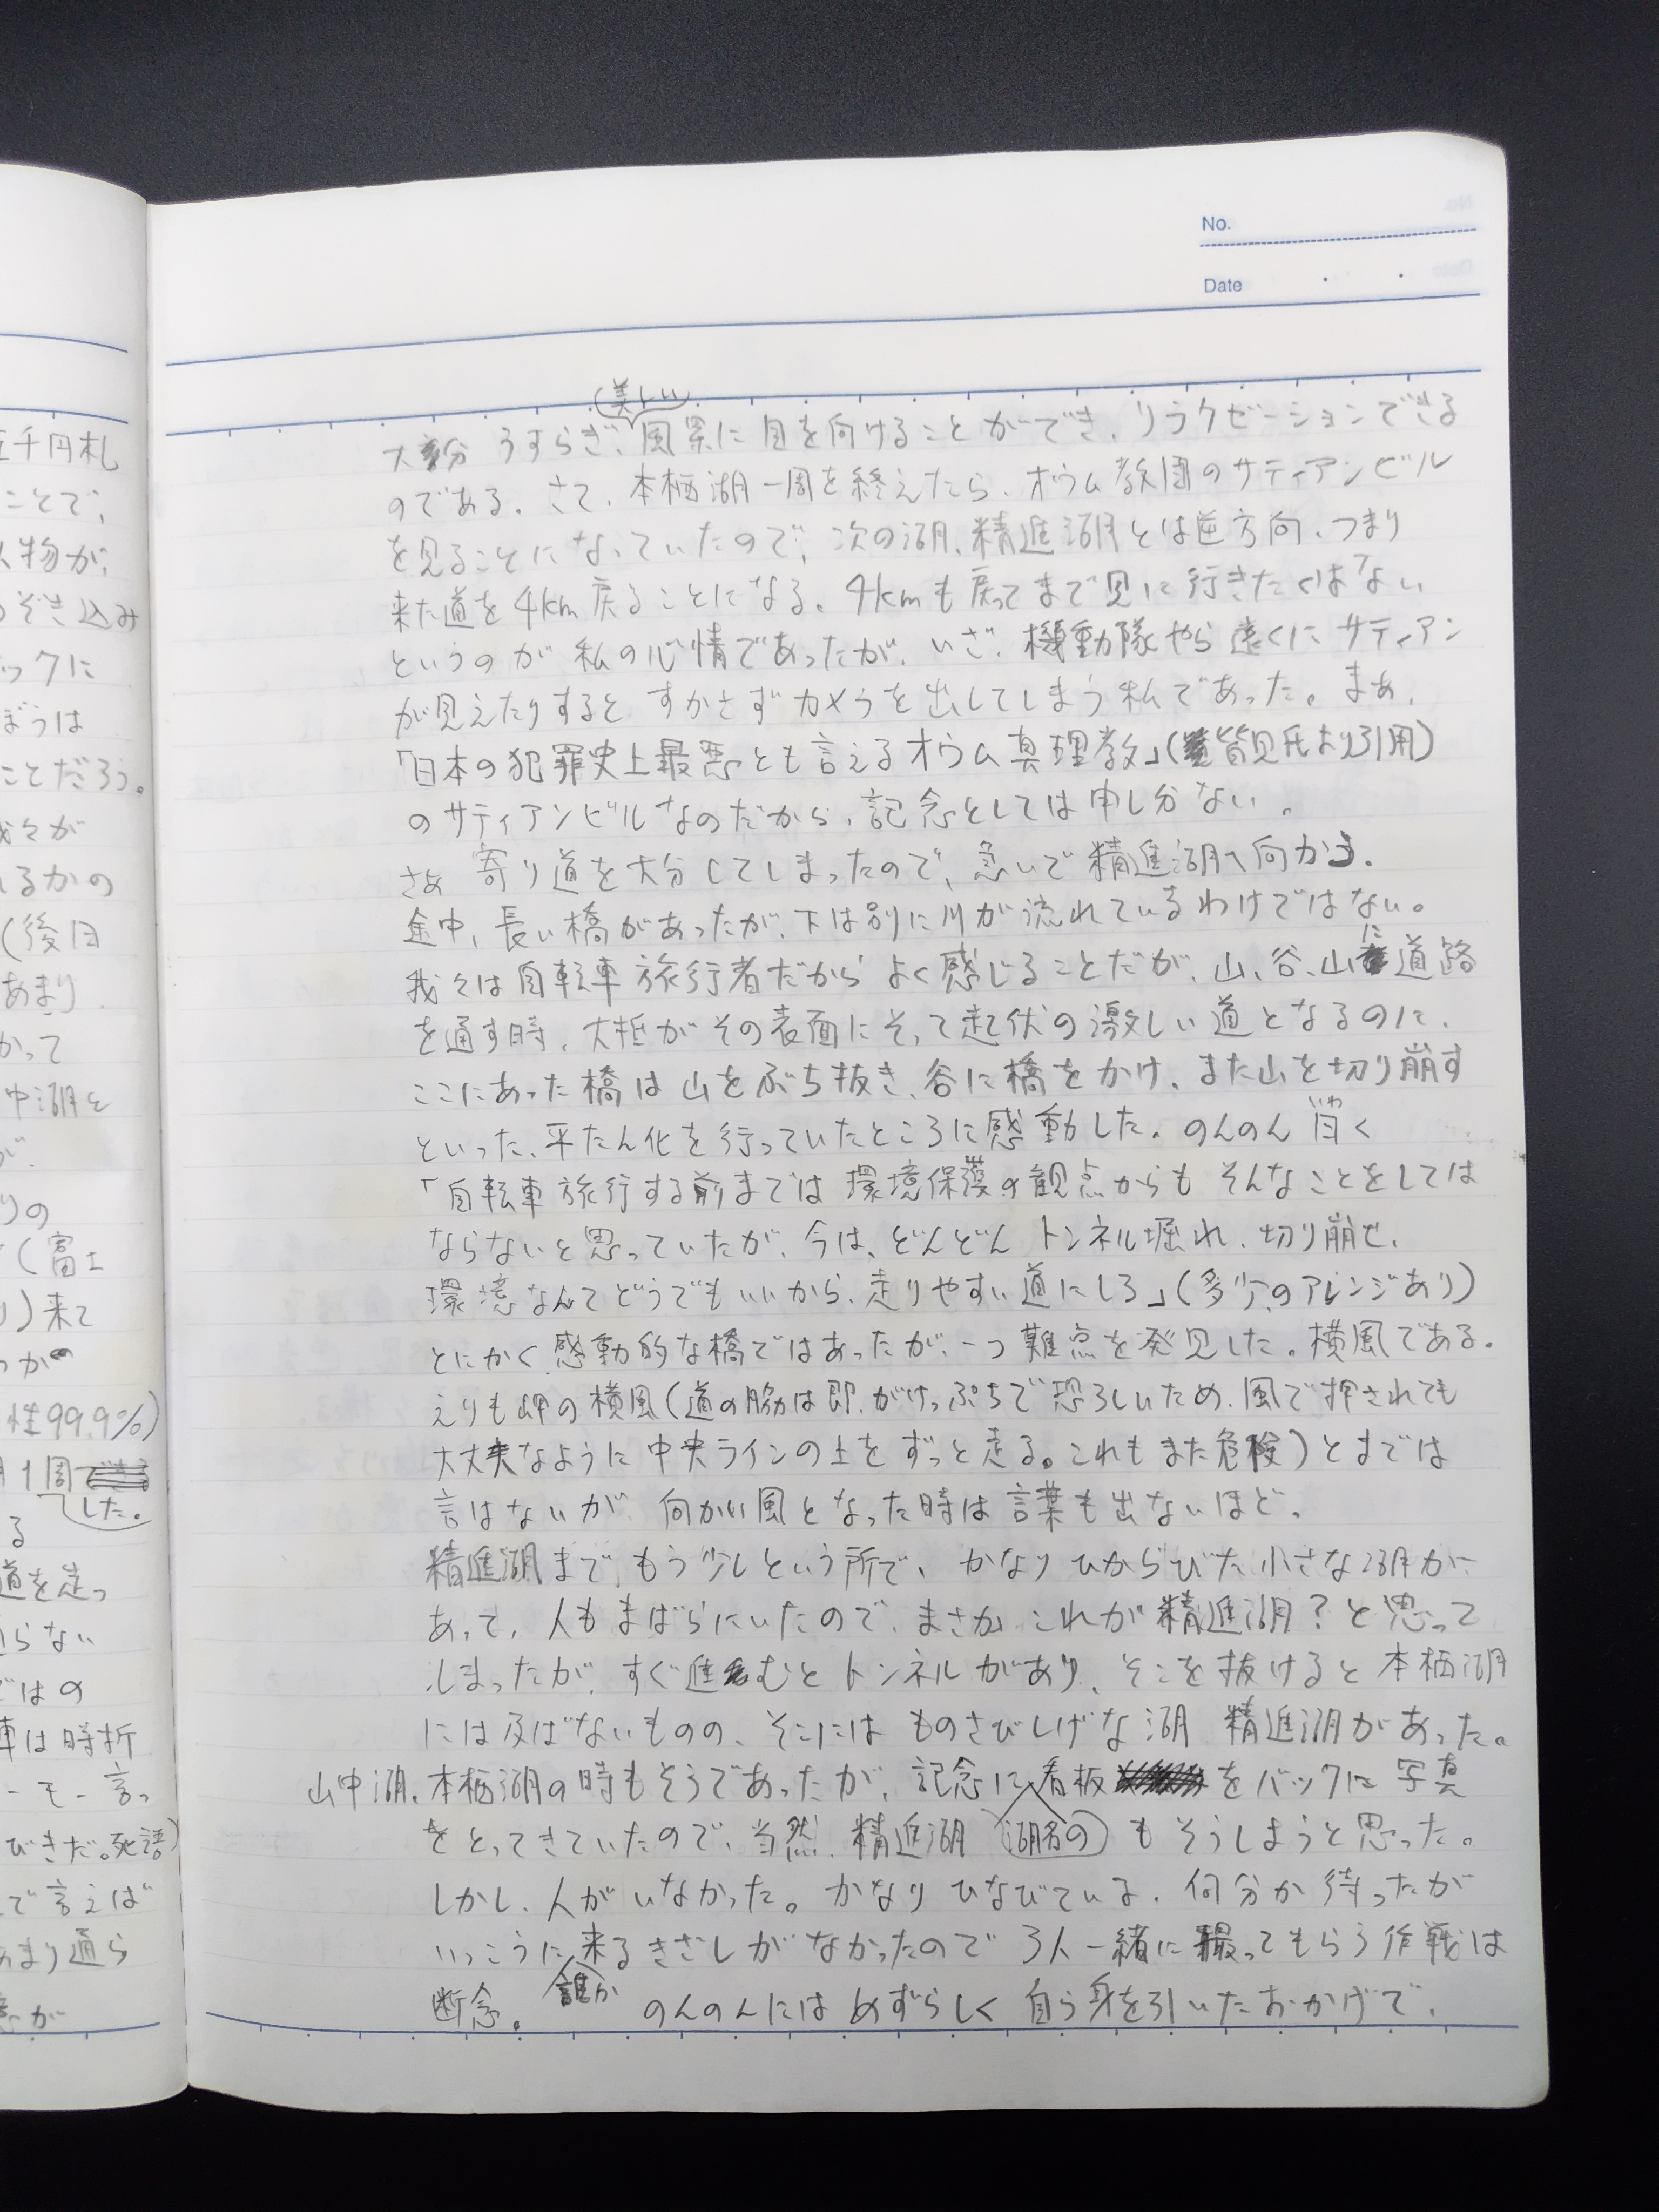 五千円札
ことで、
人物が、
のぞき込み
ックに
ぼうは
ことだろう。
我々が
るかの
(後日
あまり
かって
中湖を
が、
りの
(富士
り)来て
性99.9%)
月1周
した。
る
道を走っ
らない
ではの
車は時折
ーモー言っ
びきだ。死語)
で言えば
あまり通ら
が
No.
Date
(美しい)
大分 うすらぎ、風景に目を向けることができ、リラクゼーションできる
のである。さて、本栖湖一周を終えたら、オウム教団のサティアンビル
を見ることになっていたので、次の湖、精進湖とは逆方向、つまり
来た道を4km戻ることになる。4kmも戻ってまで見に行きたくはない
というのが私の心情であったが、いざ、機動隊やら遠くにサティアン
が見えたりすると すかさずカメラを出してしまう私であった。まあ、
「日本の犯罪史上最悪とも言えるオウム真理教」(皆見氏より引用)
のサティアンビルなのだから、記念としては申し分ない。
さぁ 寄り道を大分してしまったので、急いで精進湖へ向かう。
途中、長い橋があったが、下は別に川が流れているわけではない。
我々は自転車旅行者だからよく感じることだが、山、谷、山に道路
を通す時、大抵がその表面にそって起伏の激しい道となるのに、
ここにあった橋は山をぶち抜き、谷に橋をかけ、また山を切り崩す
といった、平たん化を行っていたところに感動した。のんのん曰く
いわ
「自転車旅行する前までは環境保護の観点からもそんなことをしては
ならないと思っていたが、今は、どんどんトンネル堀れ、切り崩せ、
環境なんてどうでもいいから、走りやすい道にしろ」(多少のアレンジあり)
とにかく感動的な橋ではあったが、一つ難点を発見した。横風である。
えりも岬の横風(道の脇は即、がけっぷちで恐ろしいため、風で押されても
大丈夫なように中央ラインの上をずっと走る。これもまた危険)とまでは
言はないが、向かい風となった時は言葉も出ないほど。
精進湖まで、もう少しという所で、かなりひからびた小さな湖が
あって、人もまばらにいたので、まさか これが精進湖?と思って
しまったが、すぐ進むとトンネルがあり、そこを抜けると本栖湖
には及ばないものの、そこには ものさびしげな湖 精進湖があった。
山中湖、本栖湖の時もそうであったが、記念に看板をバックに写真
をとってきていたので、当然、精進湖もそうしようと思った。
湖名の
しかし、人がいなかった。かなりひなびている。何分か待ったが
いっこうに来るきざしがなかったので3人一緒に撮ってもらう作戦は
誰か
断念。 のんのんにはめずらしく自ら身を引いたおかげで、